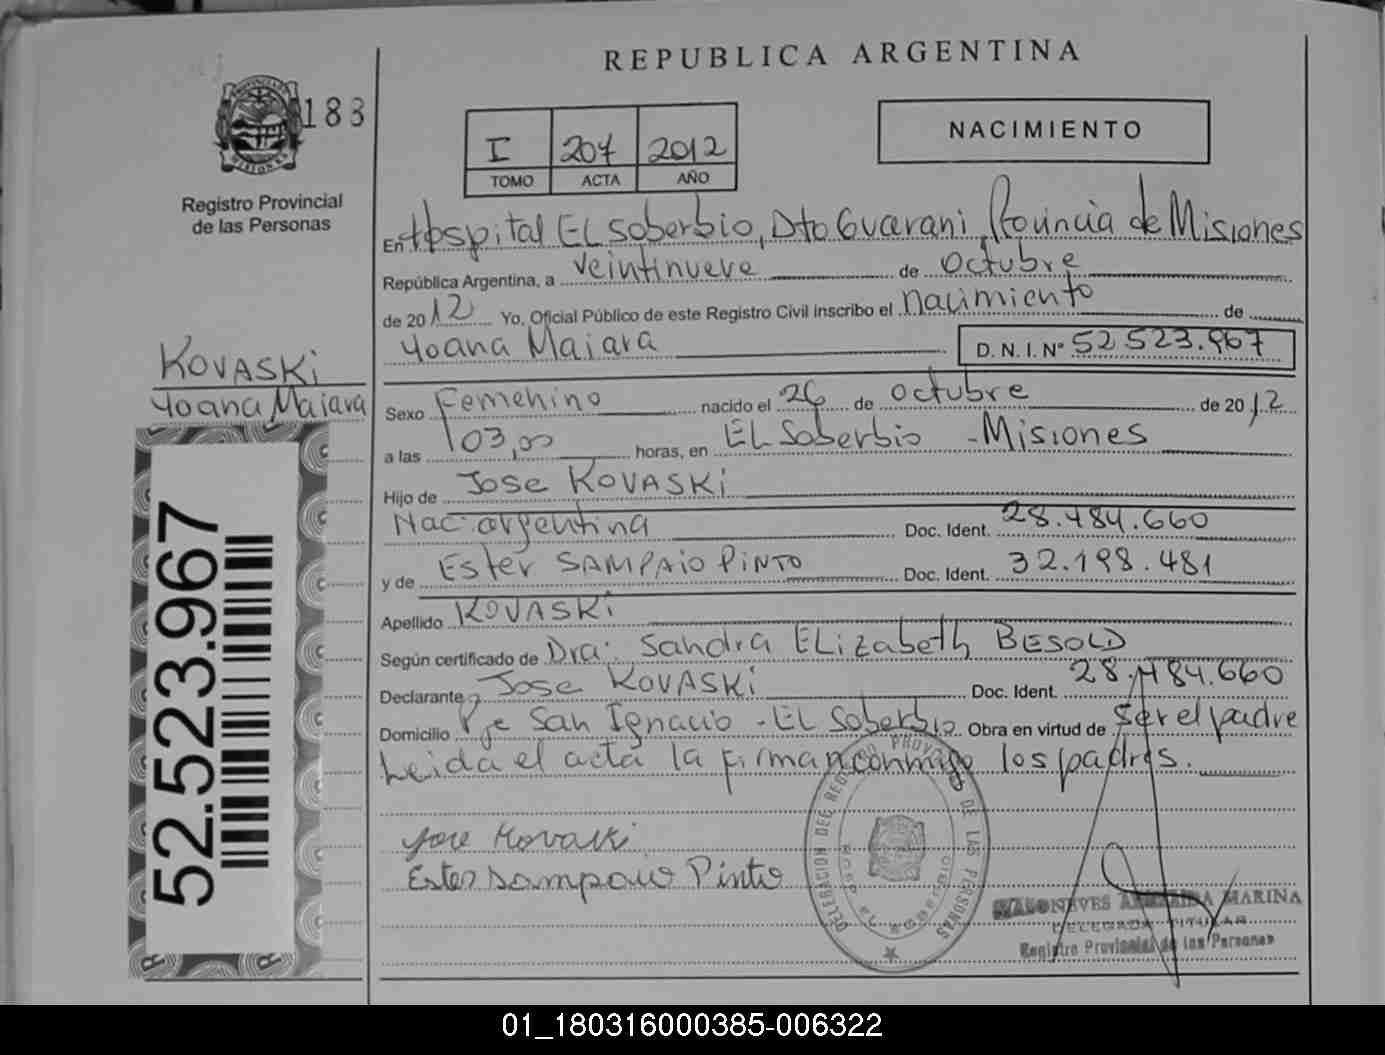 REPUBLICA ARGENTINA
188
PROVINCIA DE MISIONES
Registro Provincial
de las Personas
I 207 2012
TOMO ACTA AÑO
NACIMIENTO
En Hospital EL Soberbio, Dto Guarani, Provincia de Misiones
República Argentina, a veintinueve de octubre
de 2012 Yo, Oficial Público de este Registro Civil inscribo el nacimiento de
Yoana Maiara D. N. I. Nº 52 523.967
KOVASKi
Yoana Maiara
Sexo Femenino nacido el 26 de octubre de 2012
a las 03,00 horas, en EL Soberbio - Misiones
Hijo de Jose KOVASKi
Nac: argentina Doc. Ident. 28.484.660
y de Ester SAMPAIO PiNTO Doc. Ident. 32.198.481
Apellido KOVASKi
Según certificado de Dra: Sandra ELizabeth BESOLD
Declarante Jose KOVASKi Doc. Ident. 28.484.660
Domicilio Pje San Ignacio - EL Soberbio Obra en virtud de Ser el padre
Leida el acta la firman conmigo los padres.
52.523.967
Jose Kovaski
Ester Sampaio Pinto
DELEGACION DEL REGISTRO PROV. DE LAS PERSONAS
MARINA
DELEGADA TITULAR
Registro Provincial de las Personas
01_180316000385-006322